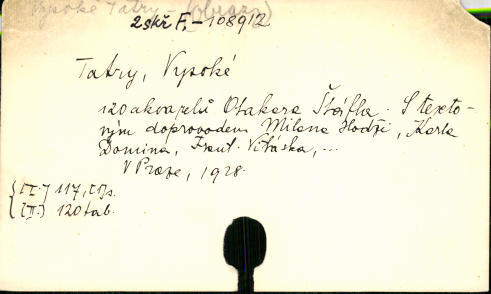 Vysoké Tatry - (obrazy)
2skř F,-108912
Tatry, Vysoké
120 akvarelů Otakara Štáfla. S texto-
vým doprovodem Milana Hodži, Karla
Domina, Frant. Vitáska, ...
V Praze, 1928.
[I.] 117, [1] s.
[II.] 120 tab.